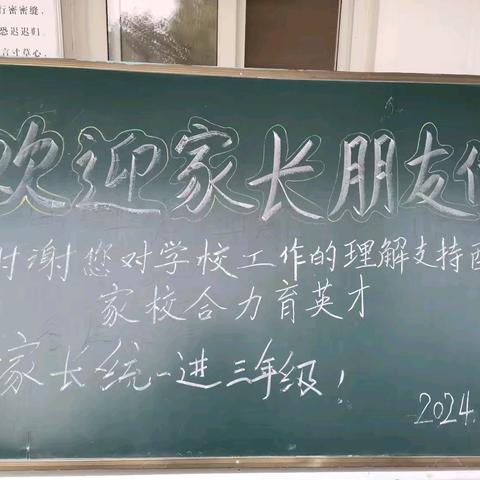 行密密缝
恐迟迟归
言寸草心
欢迎家长朋友们
谢谢您对学校工作的理解支持配
家校合力育英才
家长统一进三年级！
2024.